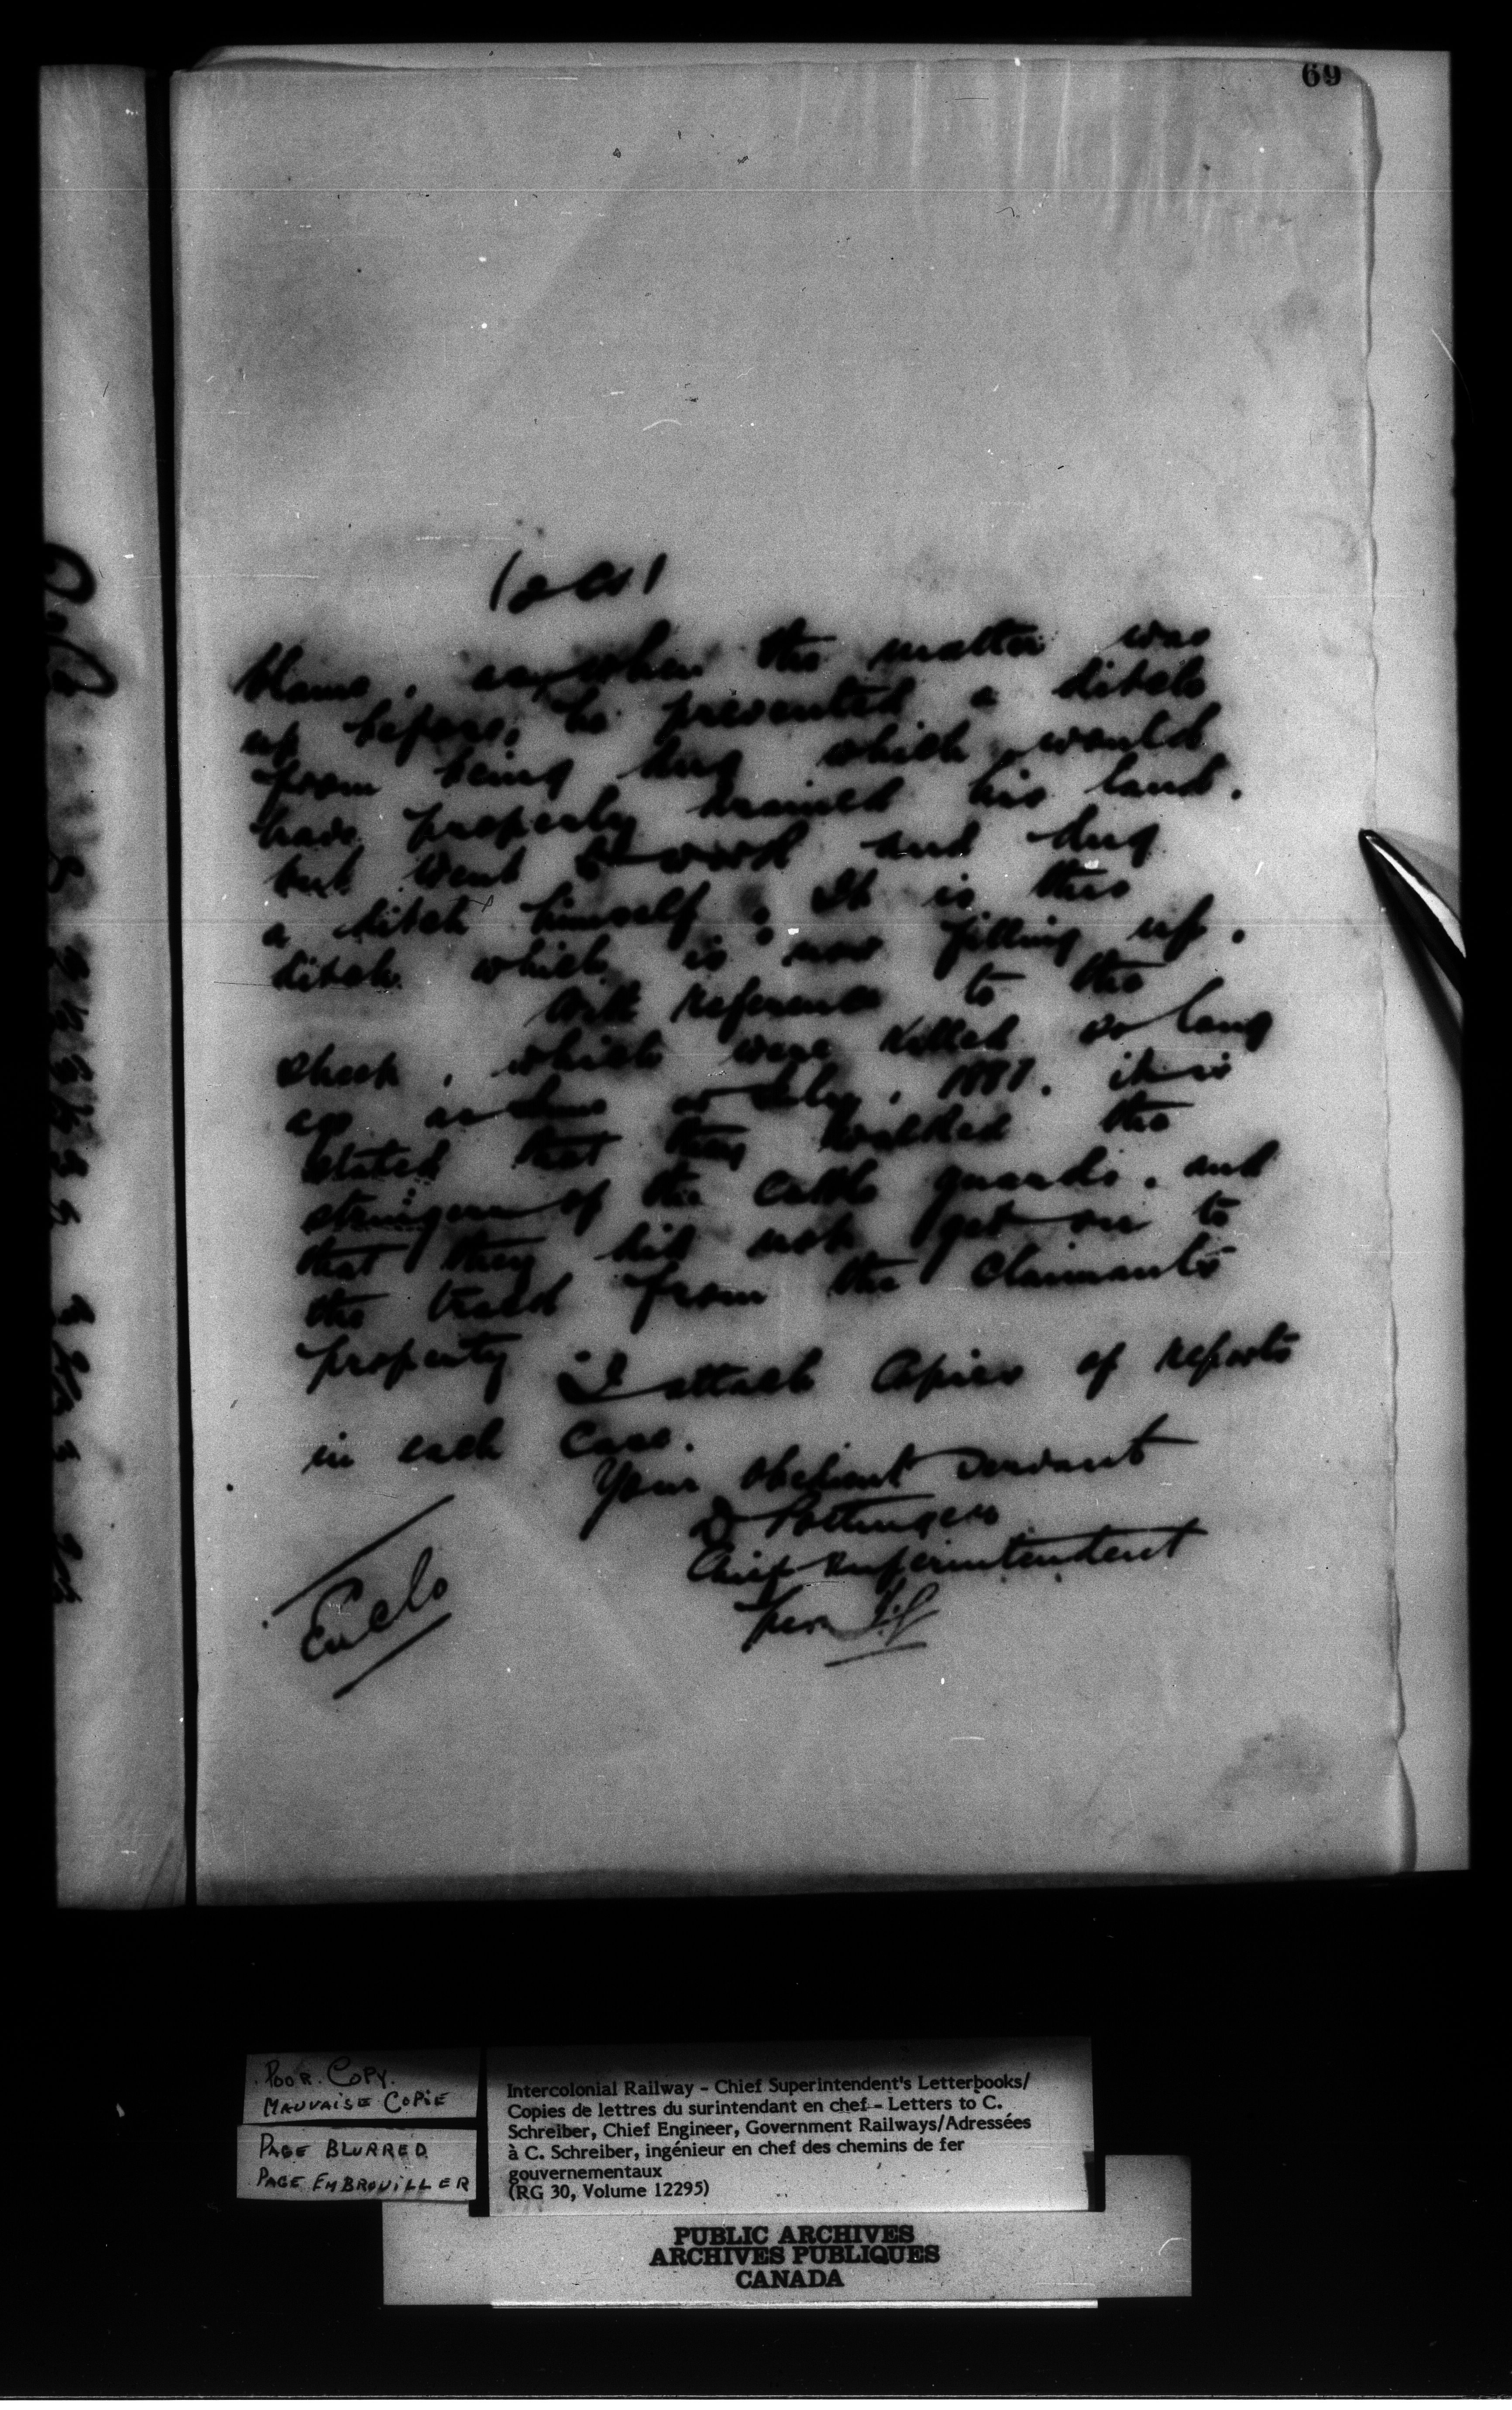 69
blame, as when the matter was
up before, he prevented a ditch
from being dug which would
have properly drained his land.
but went to work and dug
a ditch himself. It is this
ditch which is now filling up.
With reference to the
sheep, which were killed so long
ago as July, 1887. it is
stated that they walked the
stringers of the cattle guards. and
that they did not get on to
the track from the Claimant's
property
I attach Copies of reports
in each Case.
Your Obedient Servant
D Pottinger
Chief Superintendent
per
Enclo
POOR COPY.
MAUVAISE COPIE
PAGE BLURRED
PAGE EMBROUILLER
Intercolonial Railway - Chief Superintendent's Letterbooks/
Copies de lettres du surintendant en chef - Letters to C.
Schreiber, Chief Engineer, Government Railways/Adressées
à C. Schreiber, ingénieur en chef des chemins de fer
gouvernementaux
(RG 30, Volume 12295)
PUBLIC ARCHIVES
ARCHIVES PUBLIQUES
CANADA